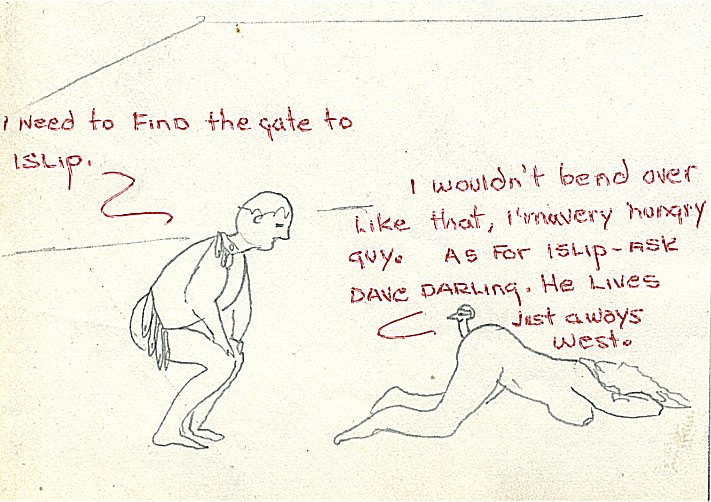 I NEED to FIND the gate to
ISLIP.
I wouldn't bend over
Like that, I'mavery hungry
guy. AS FOR ISLIP-ASK
DAVE DARLING. He LIVES
just aways
West.